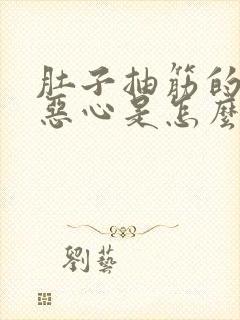 肚子抽筋的
惡心是怎麼
劉藝